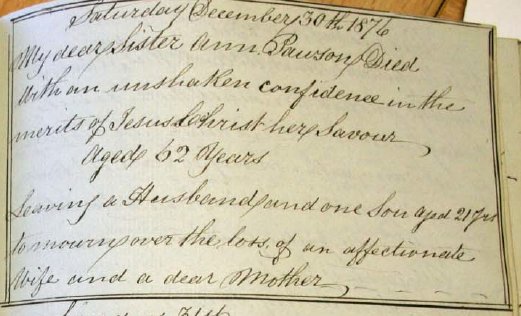 Saturday December 30th 1876
My dear Sister Ann Pawson Died
With an unshaken confidence in the
merits of Jesus Christ her Savour
Aged 62 Years
Leaving a Husband and one Son aged 21 Yrs
to mourn over the loss of an affectionate
Wife and a dear Mother
31st